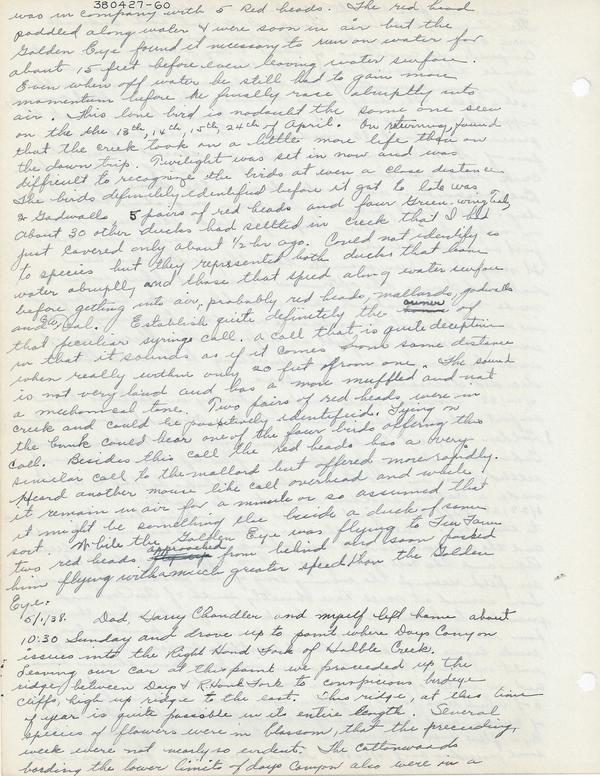 380427-60
was in company with 5 Red heads. The red head
paddled along water & were soon in air but the
Golden Eye found it necessary to run on water for
about 15 feet before even leaving water surface.
Even when off water he still had to gain more
momentum before he finally rose abruptly into
air. This lone bird is nodoubt the same one seen
on the the 13th, 14th, 15th, 24th of April. On returning, found
that the creek took on a little more life than on
the down trip. Twilight was set in now and was
difficult to recognize the birds at even a close distance
The birds definitely identified before it got to late was
2 Gadwalls 5 pairs of red heads and four Green-wing teal,
About 30 other ducks had settled in creek that I had
just covered only about 1/2 hr ago. Could not identify as
to species but they represented both ducks that leave
water abruptly and those that sped along water surface
before getting into air, probably red heads, mallards, gadwalls
and teal. Establish quite definitely the owner of
that peculiar syringe call. a call that is quite deceptive
in that it sounds as if it comes from some distance
when really within only 20 feet of from one. The sound
is not very loud and has a more muffled and not
a mechanical tone. Two pairs of red heads were in
creek and could be positively identified. Lying on
the bank could hear one of the four birds offering this
call. Besides this call the red heads has a very
similar call to the mallard but offered more rapidly.
Heard another mouse like call overhead and while
it remain in air for a minute or so assumed that
it might be something else beside a duck of some
sort. While the Golden Eye was flying to
two red heads approached from behind and soon passed
him flying with a much greater speed than the Golden
Eye.
5/1/38. Dad, Harry Chandler and myself left home about
10:30 Sunday and drove up to point where Days Canyon
issues into the Right Hand Fork of Hobble Creek.
Leaving our car at this point we proceeded up the
ridge between Days & R. Hand Fork to conspicious birdeye
cliffs, high up ridge to the east. This ridge, at this time
of year is quite passible in its entire length. Several
species of flowers were in blossom, that the preceeding,
week were not nearly so evident. The cottonwoods
bording the lower limits of days Canyon also were in a